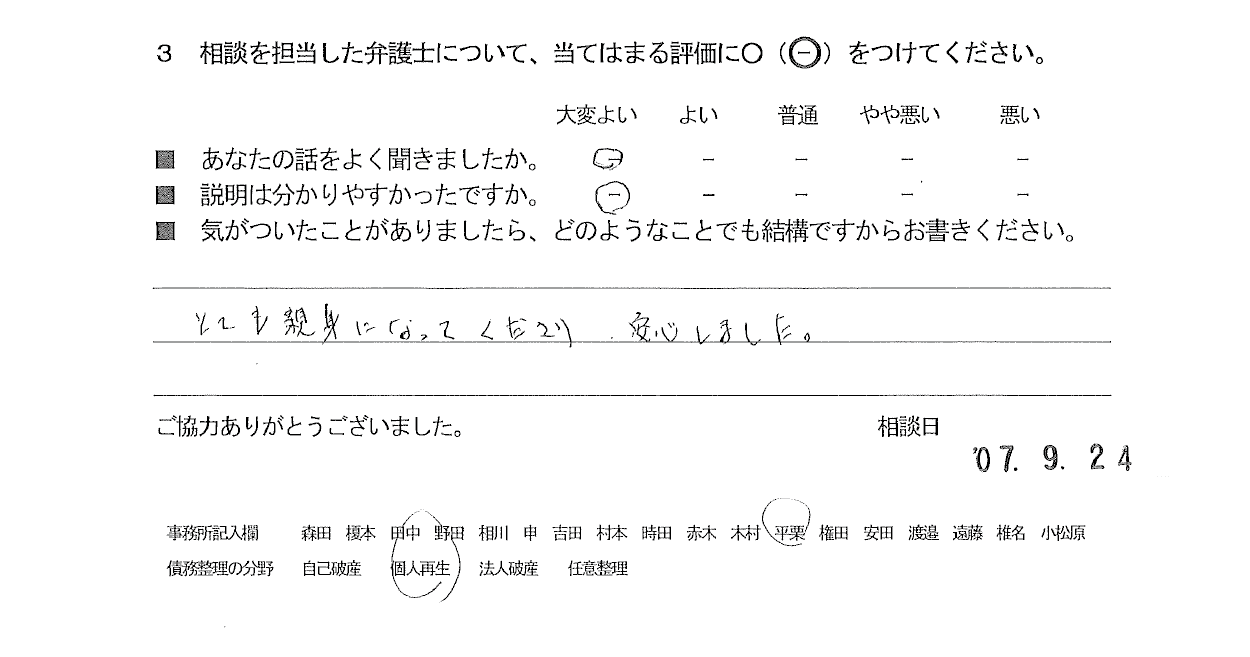 3 相談を担当した弁護士について、当てはまる評価に○（㊀）をつけてください。
大変よい よい 普通 やや悪い 悪い
■ あなたの話をよく聞きましたか。 － － － － －
■ 説明は分かりやすかったですか。 － － － － －
■ 気がついたことがありましたら、どのようなことでも結構ですからお書きください。
とても親身になってくださり、安心しました。
ご協力ありがとうございました。 相談日
'07. 9. 24
事務所記入欄 森田 榎本 田中 野田 相川 申 吉田 村本 時田 赤木 木村 平栗 権田 安田 渡邉 遠藤 椎名 小松原
債務整理の分野 自己破産 個人再生 法人破産 任意整理